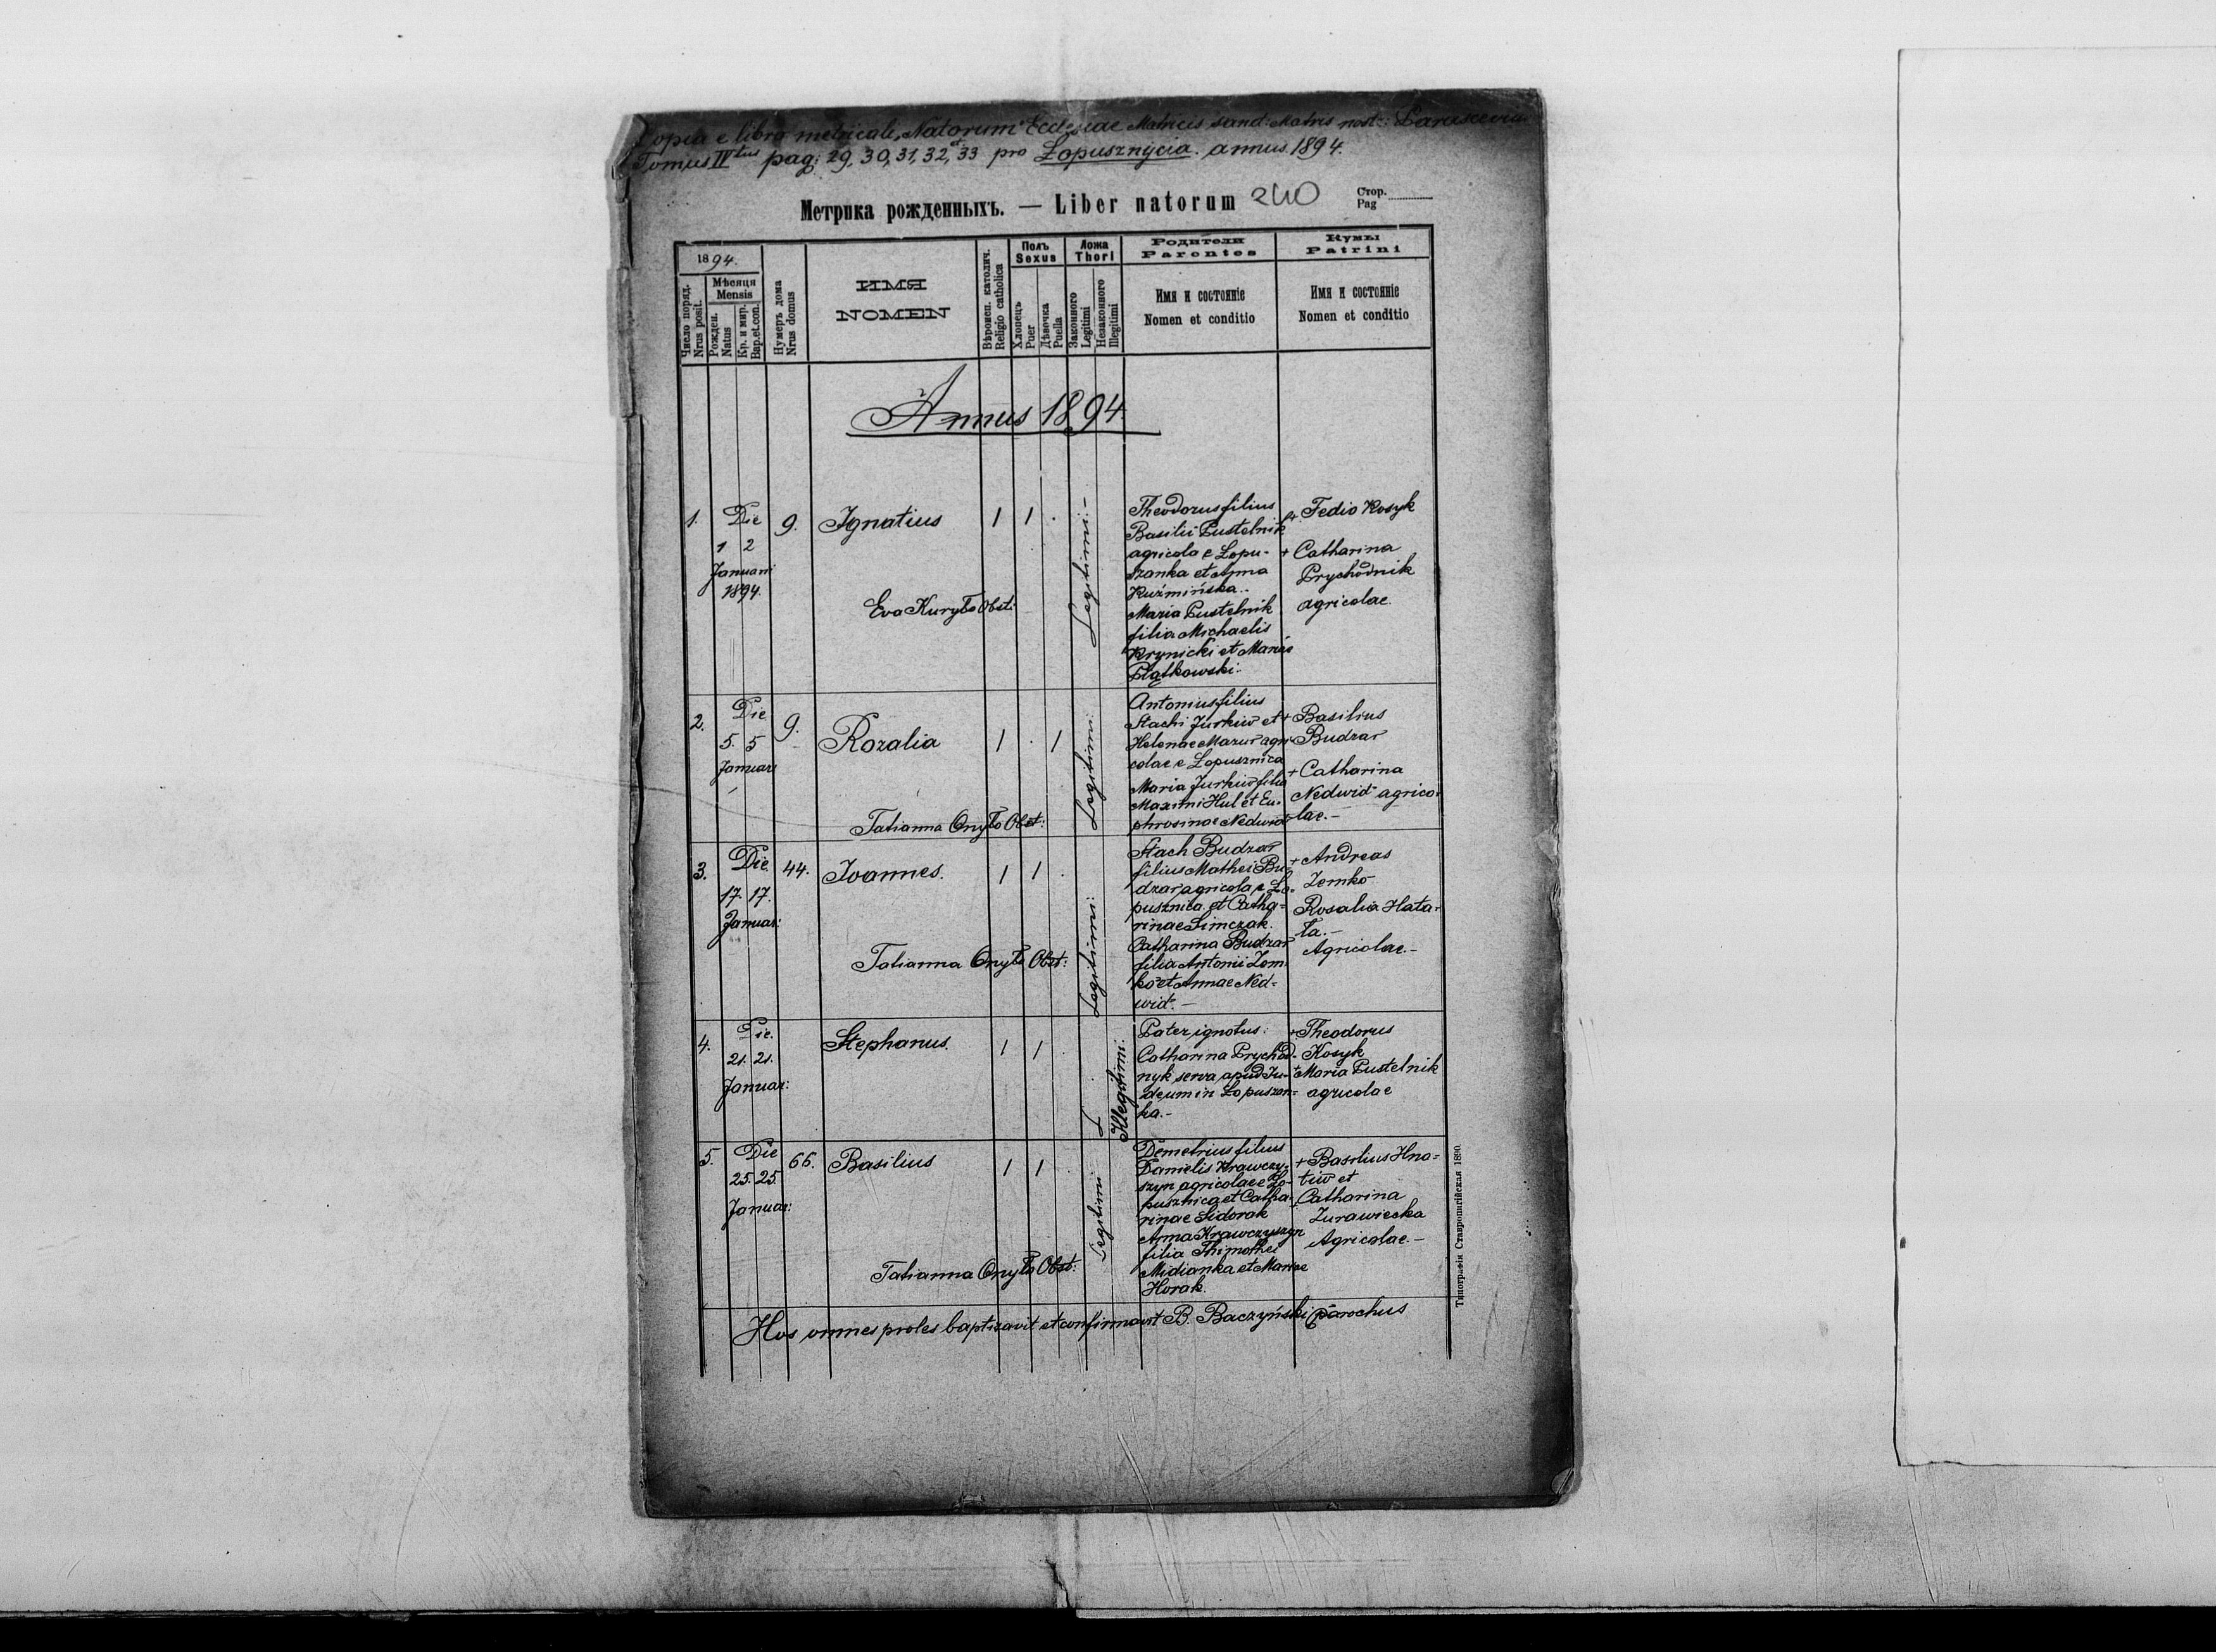 Copia e libro metricale Natorum Ecclesiae Matricis sand: Matris nost:
Tomus IV tus pag: 29, 30, 31, 32, et 33 pro Łopusznycia. annus 1894.
Метрика рожденныхъ. — Liber natorum 240 Стор. Pag
1894.
Число поряд. Nrus posit.
Мѣсяця Mensis
Рожден. Natus
Кр. и мир. Bap. et con.
Нумеръ дома Nrus domus
ИМЯ NOMEN
Вѣроисп. католич. Religio catholica
Полъ Sexus
Хлопець Puer
Дѣвочка Puella
Ложа Thori
Законного Legitimi
Незаконного Illegitimi
Родители Parentes
Имя и состоянiе Nomen et conditio
Кумы Patrini
Имя и состоянiе Nomen et conditio
Annus 1894.
1. Die 1 2 Januari 1894. 9. Ignatius 1 1 . Legitimi:-
Eva Kuryło Obst:
Theodorus filius
Basilii Pustelnik
agricola e Lopu-
szanka et Anna
Kuźmińska..
Maria Pustelnik
filia Michaelis
Krynicki et Maria
Piątkowski:
+ Fedio Kosyk
+ Catharina
Prychodnik
agricolae.
2. Die 5. 5 Januari 9. Rozalia 1 . 1 Legitimi:
Tatianna Onyło Obst:
Antonius filius
Stachi Jurkiw et
Helenae Mazur agri-
colae e Lopusznica
Maria Jurkiw filia
Maximi Hul et Eu-
phrosinae Nedwid
+ Basilius
Budzar
+ Catharina
Nedwid agrico-
lae.-
3. Die 17. 17. Januar: 44. Joannes. 1 1 . Legitimi:
Tatianna Onyło Obst:
Stach Budzar
filius Mathei Bu-
dzar agricola e Lo-
pusznica et Catha-
rinae Simczak.
Catharina Budzar
filia Antonii Zom-
ko et Annae Ned-
wid.-
+ Andreas
Zomko
Rosalia Hata-
ła.-
Agricolae.-
4. Die. 21. 21. Januar: Stephanus. 1 1 . Illegitimi:
Pater ignotus:
Catharina Prychod-
nyk serva apud Ju-
deum in Lopuszan-
ka.-
+ Theodorus
Kosyk
+ Maria Pustelnik
agricolae
5. Die 25. 25. Januar: 66. Basilius 1 1 . Legitimi
Tatianna Onyło Obst:
Demetrius filius
Danielis Krawczy-
szyn agricolae e Lo-
pusznica et Catha-
rinae Sidorak
Anna Krawczyszyn
filia Thimothei
Midianka et Mariae
Horak.
+ Basilius Hna-
tiw et
+ Catharina
Zurawiecka
Agricolae.-
Hos omnes proles baptizavit et confirmavit B. Baczyński parochus
Типографiя Ставропигiйская 1890.